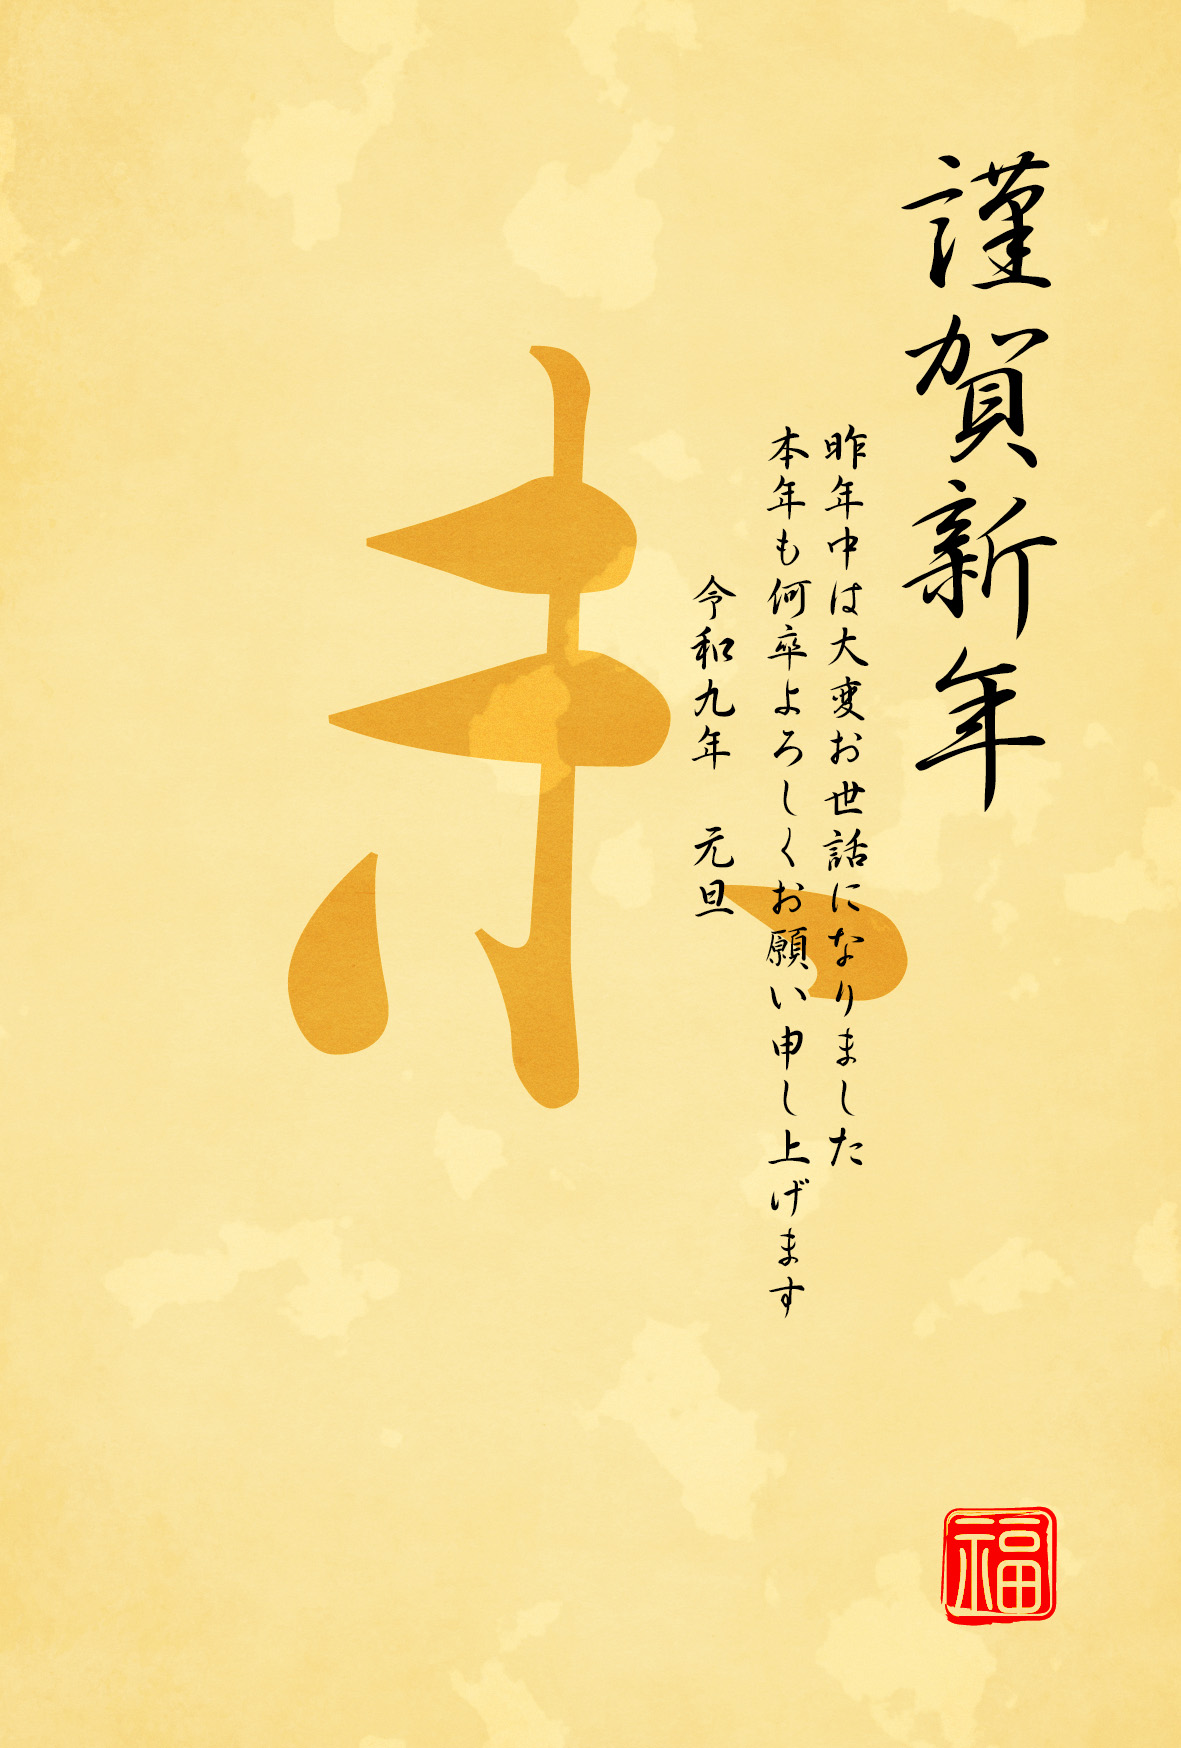 謹賀新年
昨年中は大変お世話になりました
本年も何卒よろしくお願い申し上げます
令和九年　元旦
未
福